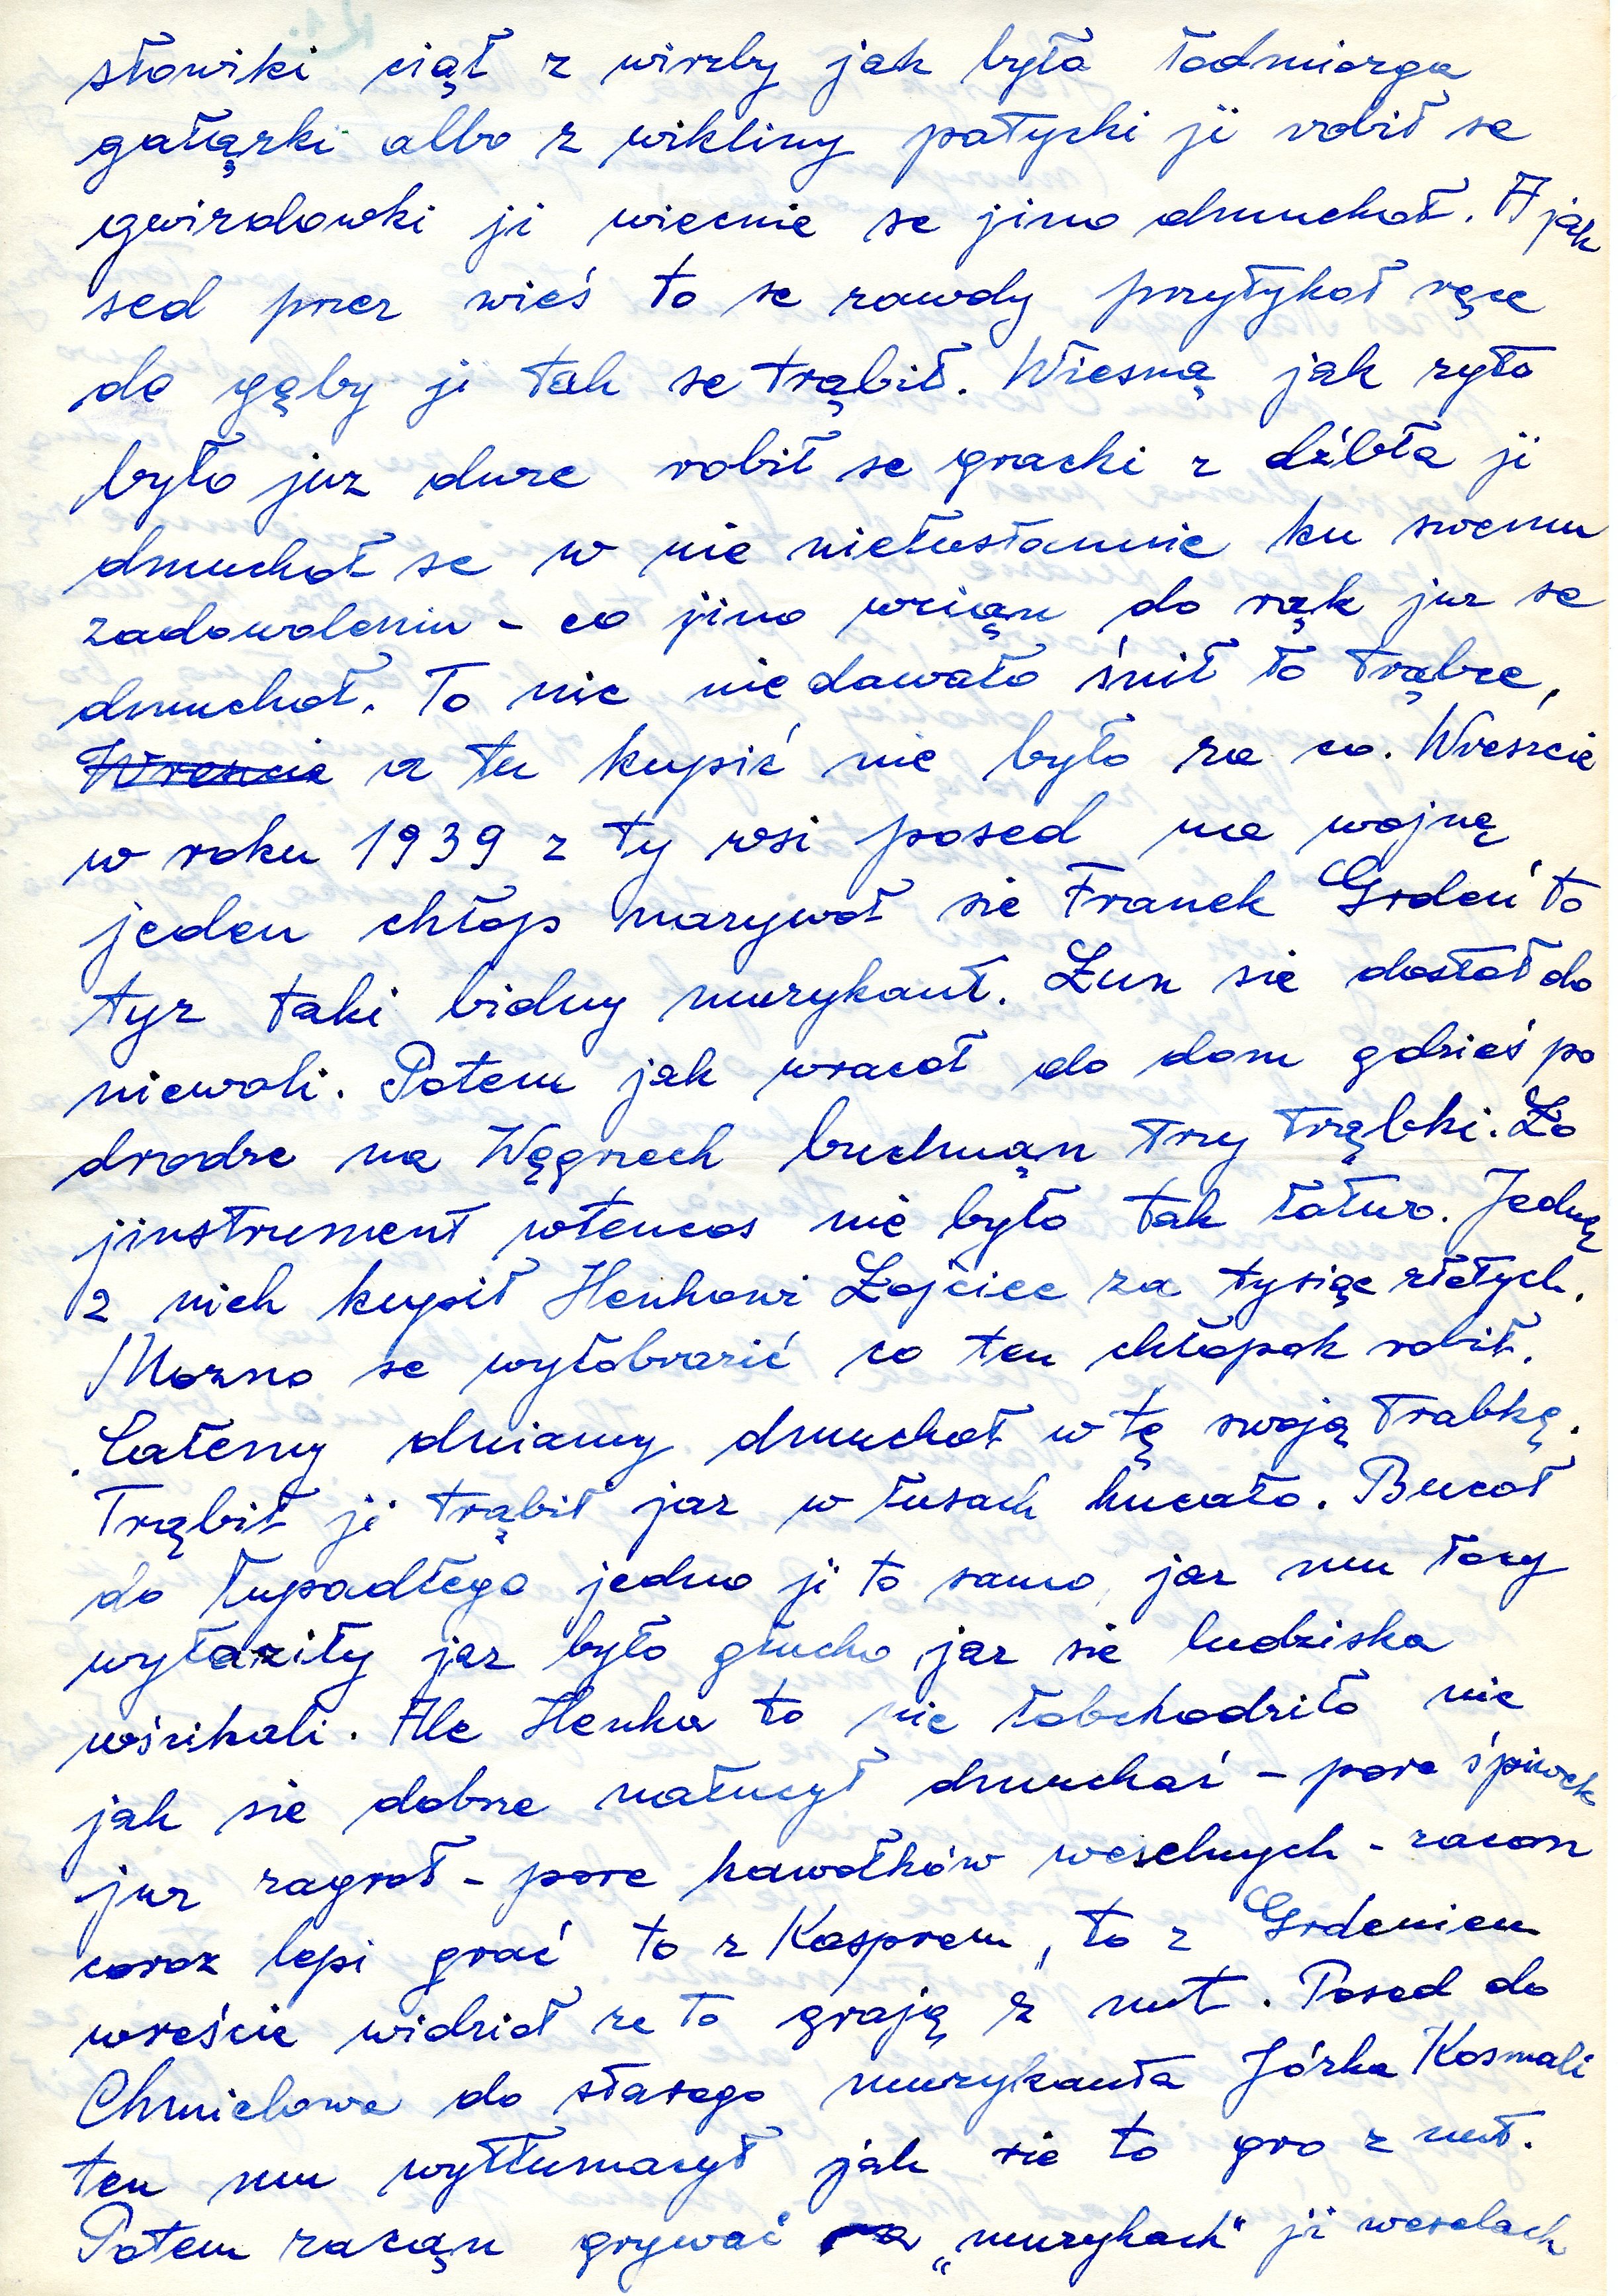 słowiki ciął z wirzby jak była łodmiozga
gałązki albo z wikliny patycki ji robił se
gwizdowki ji wiecnie se jino dmuchoł. A jak
sed prez wieś to se zawdy przytykoł ręce
do gęby ji tak se trąbił. Wiesną jak zyto
było juz duze robił se gracki z dźbła ji
dmuchoł se w nie niełustannie ku swemu
zadowoleniu – co jino wziąn do rąk juz se
dmuchoł. To nic nie dawało śnił ło trąbce,
Wrescie a tu kupić nie było za co. Wreście
w roku 1939 z ty wsi posed na wojnę
jeden chłop nazywoł sie Franek Grdeń to
tyz taki bidny muzykant. Łun sie dostoł do
niewoli. Potem jak wracoł do dom gdzieś po
drodze na Węgrzech buchnąn trzy trąbki. Ło
jinstrument wtencos nie było tak łatwo. Jednę
z nich kupił Henkowi Łojciec za tysiąc złotych.
Mozno se wyłobrazić co ten chłopok robił.
Całemy dniamy dmuchoł w tę swoją trabkę.
Trąbił ji trąbił jaz w łusach hucało. Bucoł
do łupadłego jedno ji to samo, jaz mu łocy
wyłaziły jaz było głucho, jaz sie ludziska
wśzikali. Ale Henka to nic łobchodziło nie
jak sie dobrze nałucył dmuchać – pore śpiwek
juz zagroł – pore kawołków weselnych – zacon
coroz lepi grać to z Kosprem, to z Grdeniem
wreście widzioł ze to grają z nut. Posed do
Chmielowa do starego muzykanta Józka Kosmali
ten mu wytłumacył jak sie to gro z nut.
Potem zacąn grywać na „muzykach” ji weselach